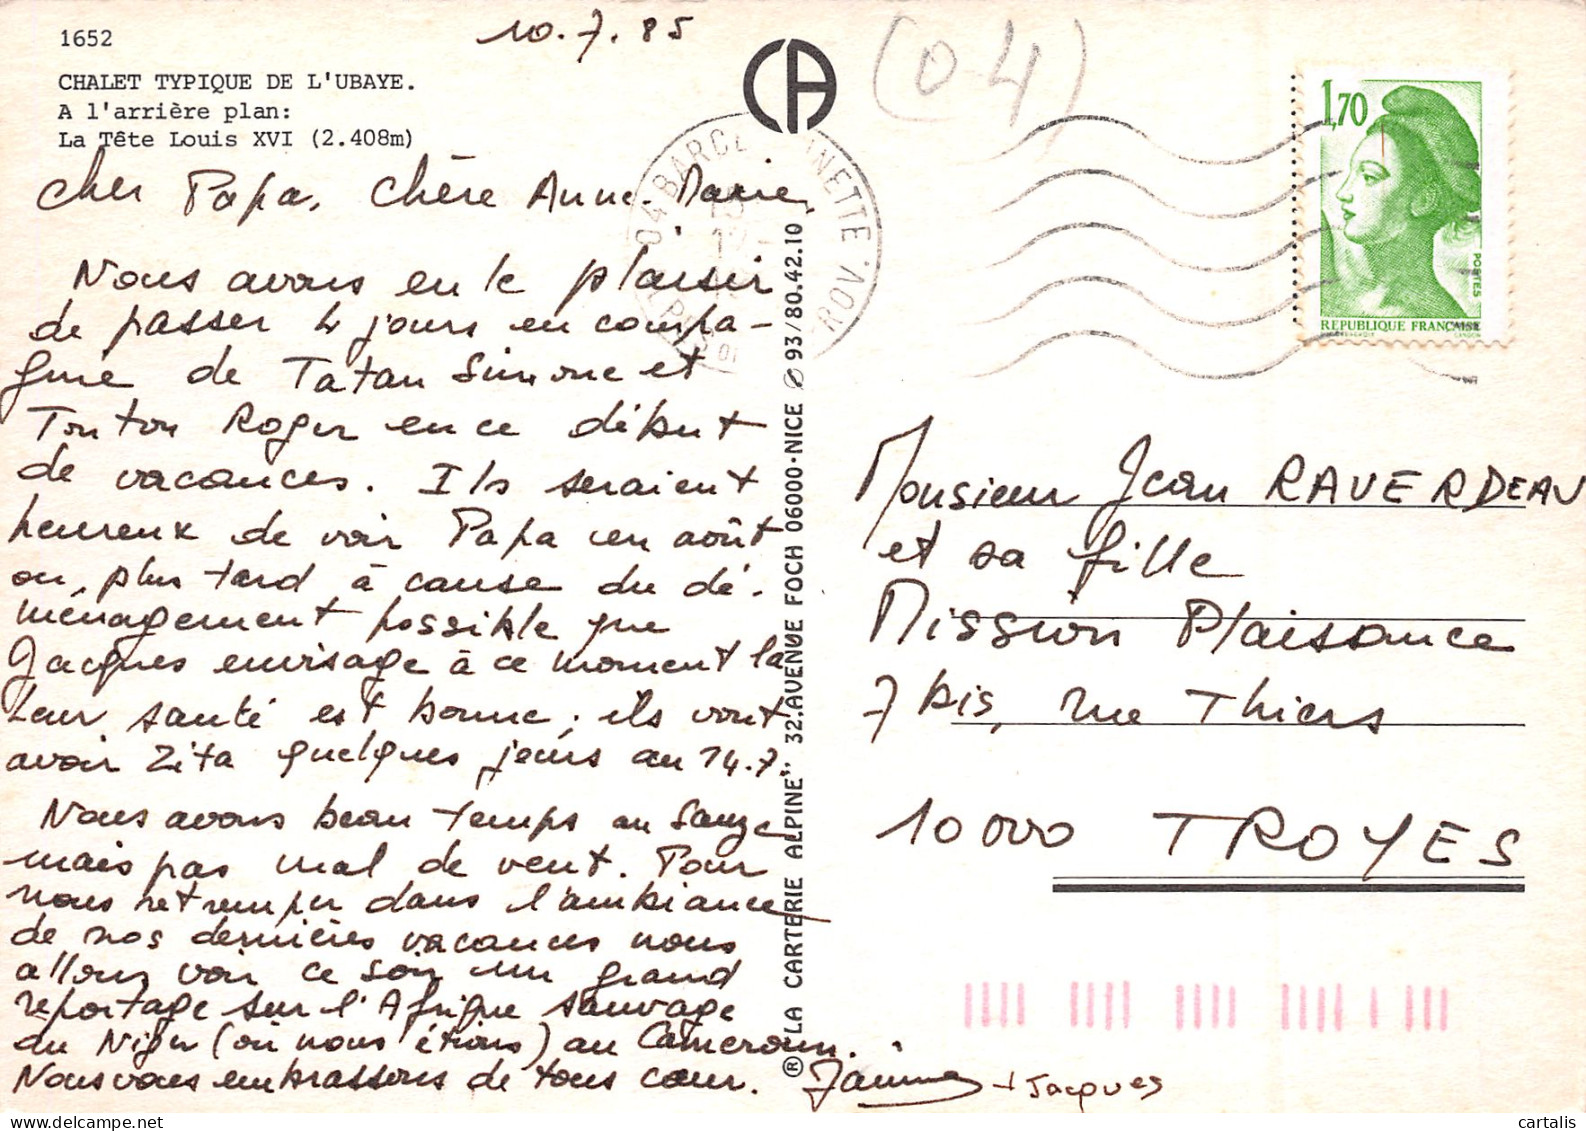 1652
CHALET TYPIQUE DE L'UBAYE.
A l'arrière plan:
La Tête Louis XVI (2.408m)
10.7.85
CA
(04)
04 BARCELONNETTE
1,70
POSTES
REPUBLIQUE FRANCAISE
Cher Papa, Chère Anne-Marie,
Nous avons eu le plaisir
de passer 4 jours en compa-
gnie de Tatan Simone et
Tonton Roger en ce début
de vacances. Ils seraient
heureux de voir Papa en août
ou plus tard à cause du dé-
ménagement possible que
Jacques envisage à ce moment là
Leur santé est bonne; ils vont
avoir Zita quelques jours au 14.7.
Nous avons beau temps au Sauze
mais pas mal de vent. Pour
nous retremper dans l'ambiance
de nos dernières vacances nous
allons voir ce soir un grand
reportage sur l'Afrique sauvage
du Niger (où nous étions) au Cameroun.
Nous vous embrassons de tout cœur.
+ Jacques
® "LA CARTERIE ALPINE" 32.AVENUE FOCH 06000-NICE 93/80.42.10
Monsieur Jean RAVERDEAU
et sa fille
Mission Plaisance
7 bis, rue Thiers
10000 TROYES
cartalis